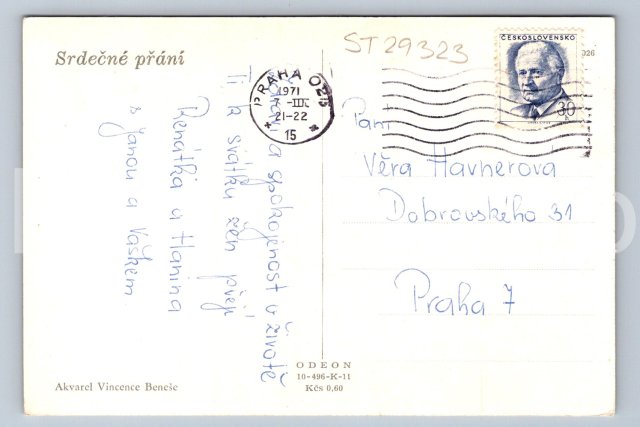 Srdečné přání
ST 29323
ČESKOSLOVENSKO
30
026
PRAHA
1971
7.-III.
21-22
15
a spokojenost v životě
Ti k svátku žen přejí
Renátka a Hanina
s Janou a Vaškem
Paní
Věra Havnerová
Dobrovského 31
Praha 7
ODEON
10-496-K-11
Kčs 0,60
Akvarel Vincence Beneše